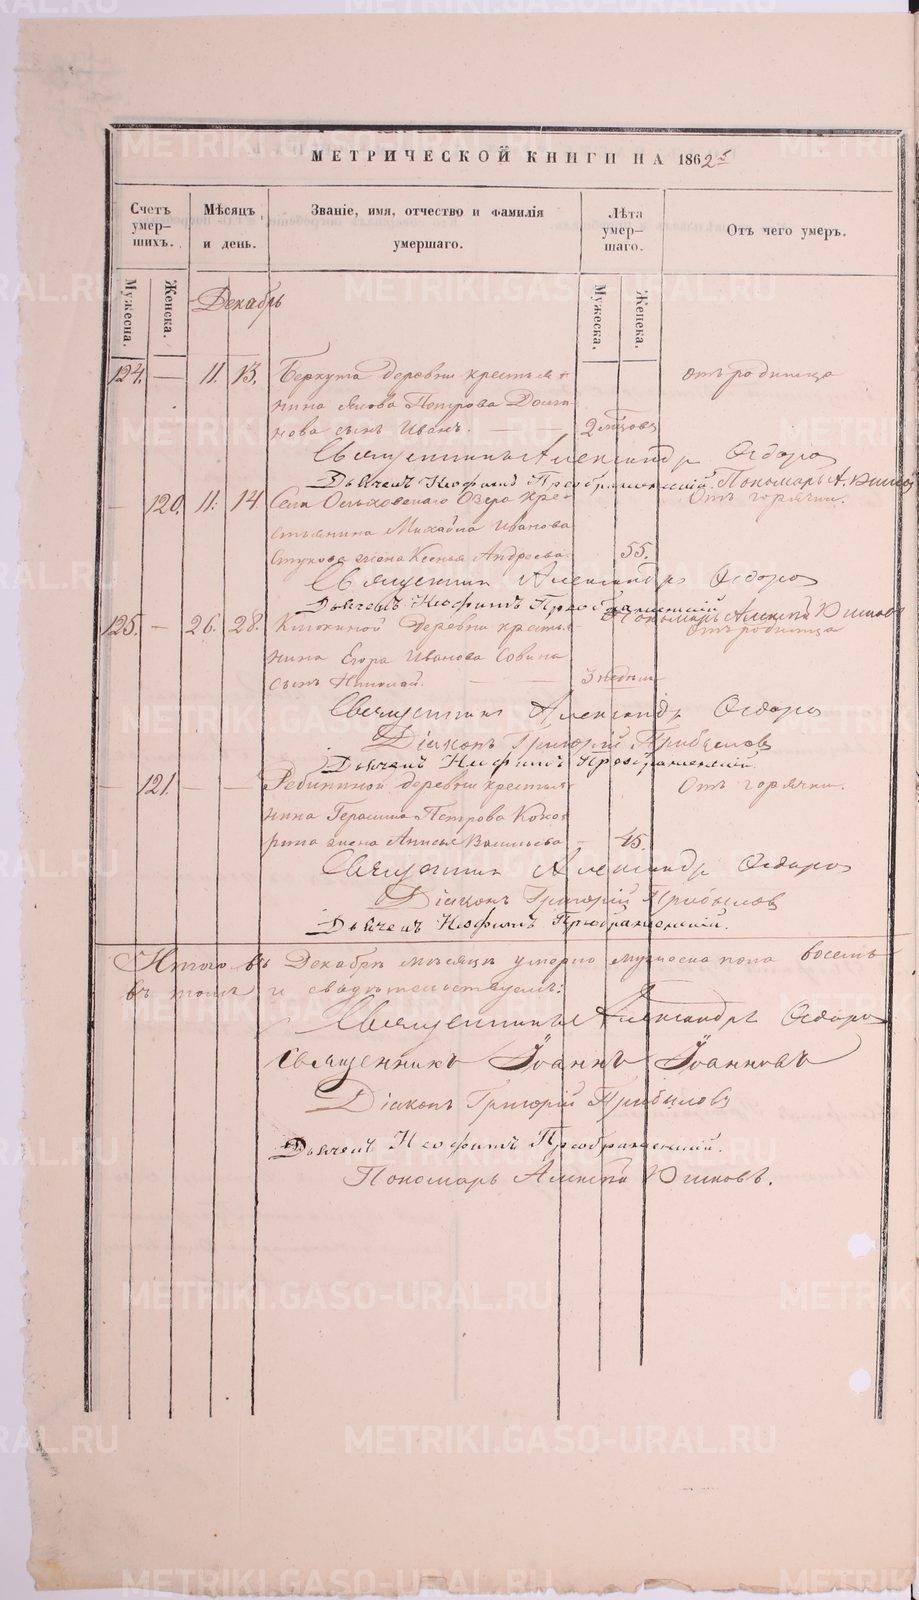 МЕТРИЧЕСКОЙ КНИГИ НА 1862
Счетъ умер-шихъ.
Мѣсяцъ и день.
Званіе, имя, отчество и фамилія умершаго.
Лѣта умер-шаго.
Отъ чего умеръ.
Мужеска.
Женска.
Мужеска.
Женска.
Декабрь
124. — 11. 13. Беркута деревни крестья- отъ родимца
нина Якова Петрова
сынъ Иванъ. — — 2 мѣсяцовъ
Священникъ Александръ
Дьячекъ Неофитъ Преображенскій. Пономарь А.
— 120. 11. 14. Села Ольховскаго Озера кре- Отъ горячки.
стьянина Михаила Иванова
жена Ксенья Андреева 55.
Священникъ Александръ
Дьячекъ Неофитъ Преображенскій Пономарь Алексѣй
125. — 26. 28. деревни крестья- отъ родимца
нина Егора Иванова Совина
сынъ Николай. — — 3 недѣли
Священникъ Александръ
Діаконъ Григорій Прибыловъ
Дьячекъ Неофитъ Преображенскій.
— 121. — — деревни крестья- Отъ горячки.
нина Герасима Петрова
жена Анисья Васильева — 45.
Священникъ Александръ
Діаконъ Григорій Прибыловъ
Дьячекъ Неофитъ Преображенскій.
Итого въ Декабрѣ мѣсяцѣ умерло мужеска пола восемь
въ томъ и свидѣтельствуемъ:
Священникъ Александръ
Священникъ Іоаннъ Іоанновъ
Діаконъ Григорій Прибыловъ
Дьячекъ Неофитъ Преображенскій.
Пономарь Алексѣй
METRIKI.GASO-URAL.RU